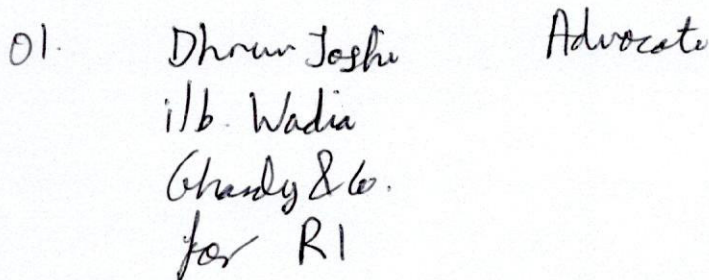 01. Dhruv Joshi Advocate
i/b. Wadia
Ghandy & Co.
for R1